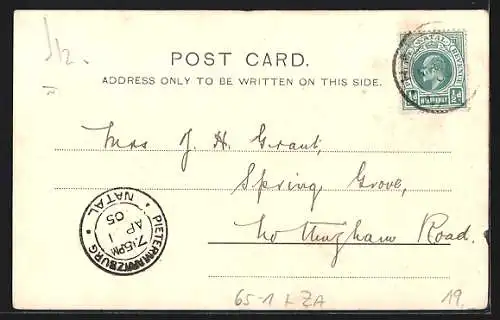 1/2
POST CARD.
ADDRESS ONLY TO BE WRITTEN ON THIS SIDE.
NATAL
REVENUE
½d
HALFPENNY
½d
Mrs J. H. Grant,
Spring Grove,
Nottingham Road.
PIETERMARITZBURG
NATAL
7.15PM
AP 1
05
65-1 KZA
19.